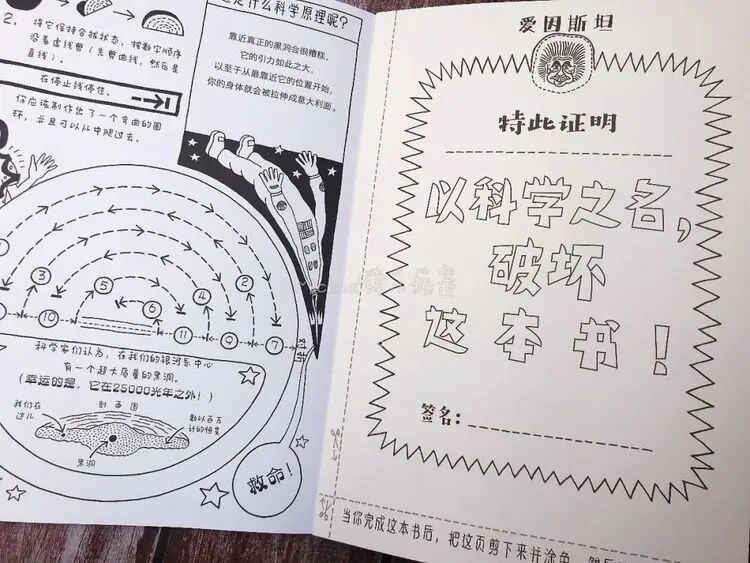 是什么科学原理呢?
2. 将它保持合拢状态,按数字顺序
沿着虚线剪(先剪曲线,然后是
直线)。
在停止线停住。
你应该制作出了一个弯曲的圆
环,并且可以从中爬过去。
靠近真正的黑洞会很糟糕,
它的引力如此之大,
以至于从最靠近它的位置开始,
你的身体就会被拉伸成意大利面。
③
⑤
④
②
⑥
⑩
⑪
⑨
⑦
科学家们认为,在我们的银河系中心
有一个超大质量的黑洞。
(幸运的是,它在25000光年之外!)
我们在
这儿
剖面图
数以百万
计的恒星
黑洞
救命!
爱因斯坦
特此证明
以科学之名,
破坏
这本书!
签名:
当你完成这本书后,把这页剪下来并涂色